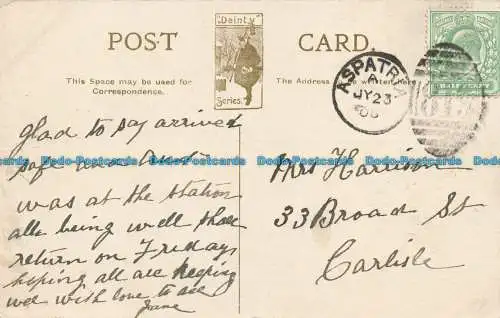 POST CARD
"Dainty"
Series.
This Space may be used for
Correspondence.
The Address to be written
ASPATRIA
A
JY 23
06
HALFPENNY
Glad to say arrived
safe and
was at the station
all being well shall
return on Friday
hoping all are keeping
well with love to all
Jane
Mrs Harrison
33 Broad St
Carlisle
Dodo-Postcards Dodo-Postcards Dodo-Postcards Dodo-Postcards Dodo-Postcards
Dodo-Postcards Dodo-Postcards Dodo-Postcards Dodo-Postcards